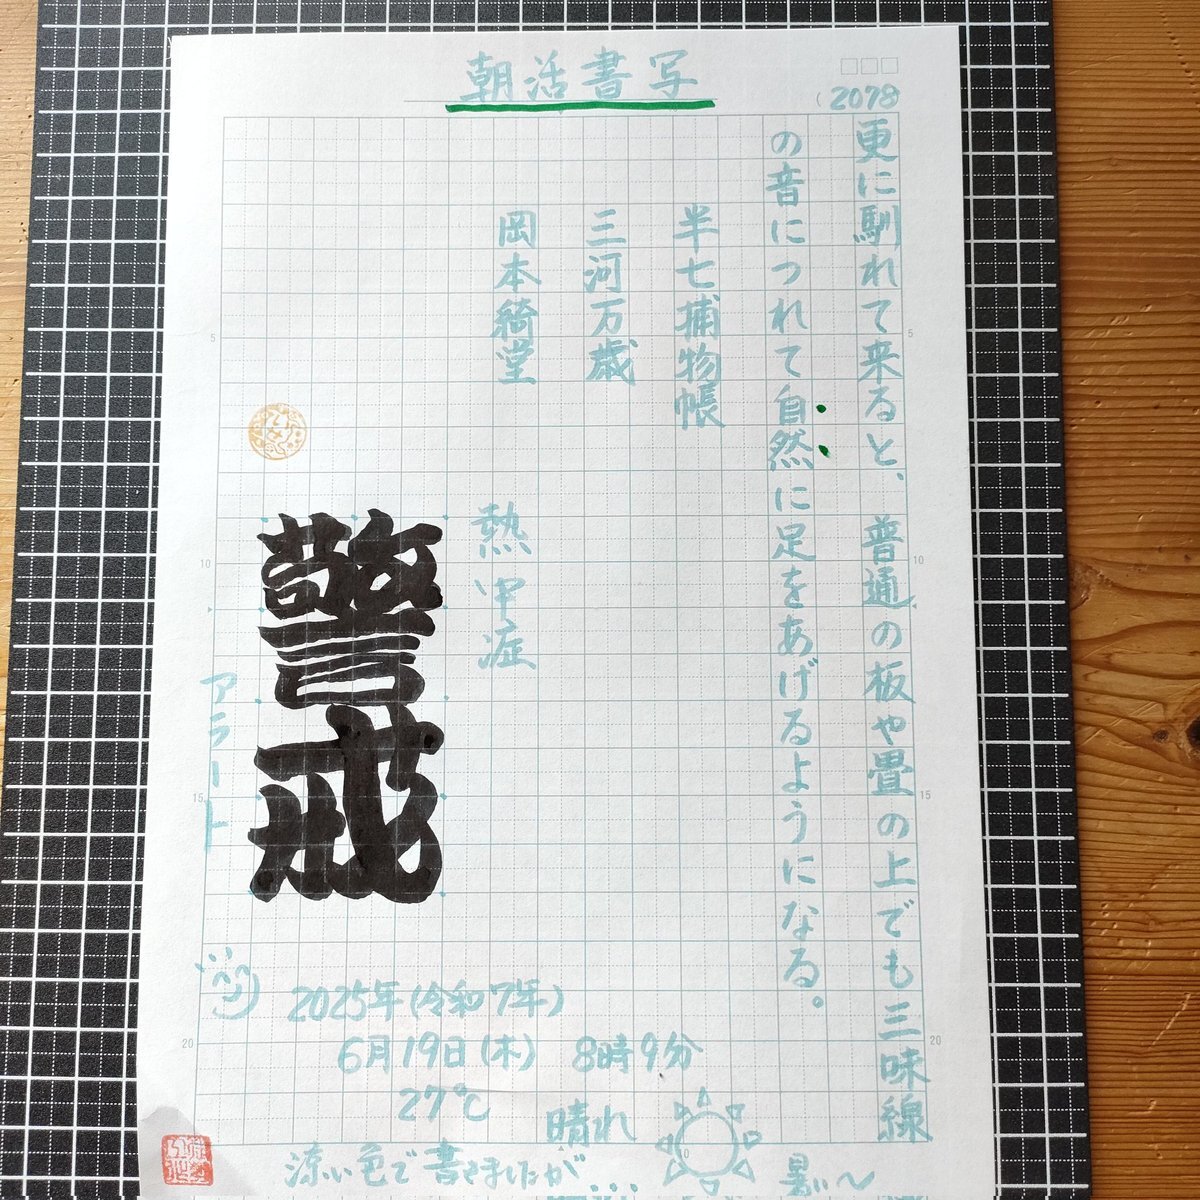 朝活書写
(2078
更に馴れて来ると、普通の板や畳の上でも三味線
の音につれて自然に足をあげるようになる。
半七捕物帳
三河万歳
岡本綺堂
熱中症
警戒
アラート
2025年(令和7年)
6月19日(木) 8時9分
27℃
晴れ
涼しい色で書きましたが…
暑い〜
5
5
10
10
15
15
20
20